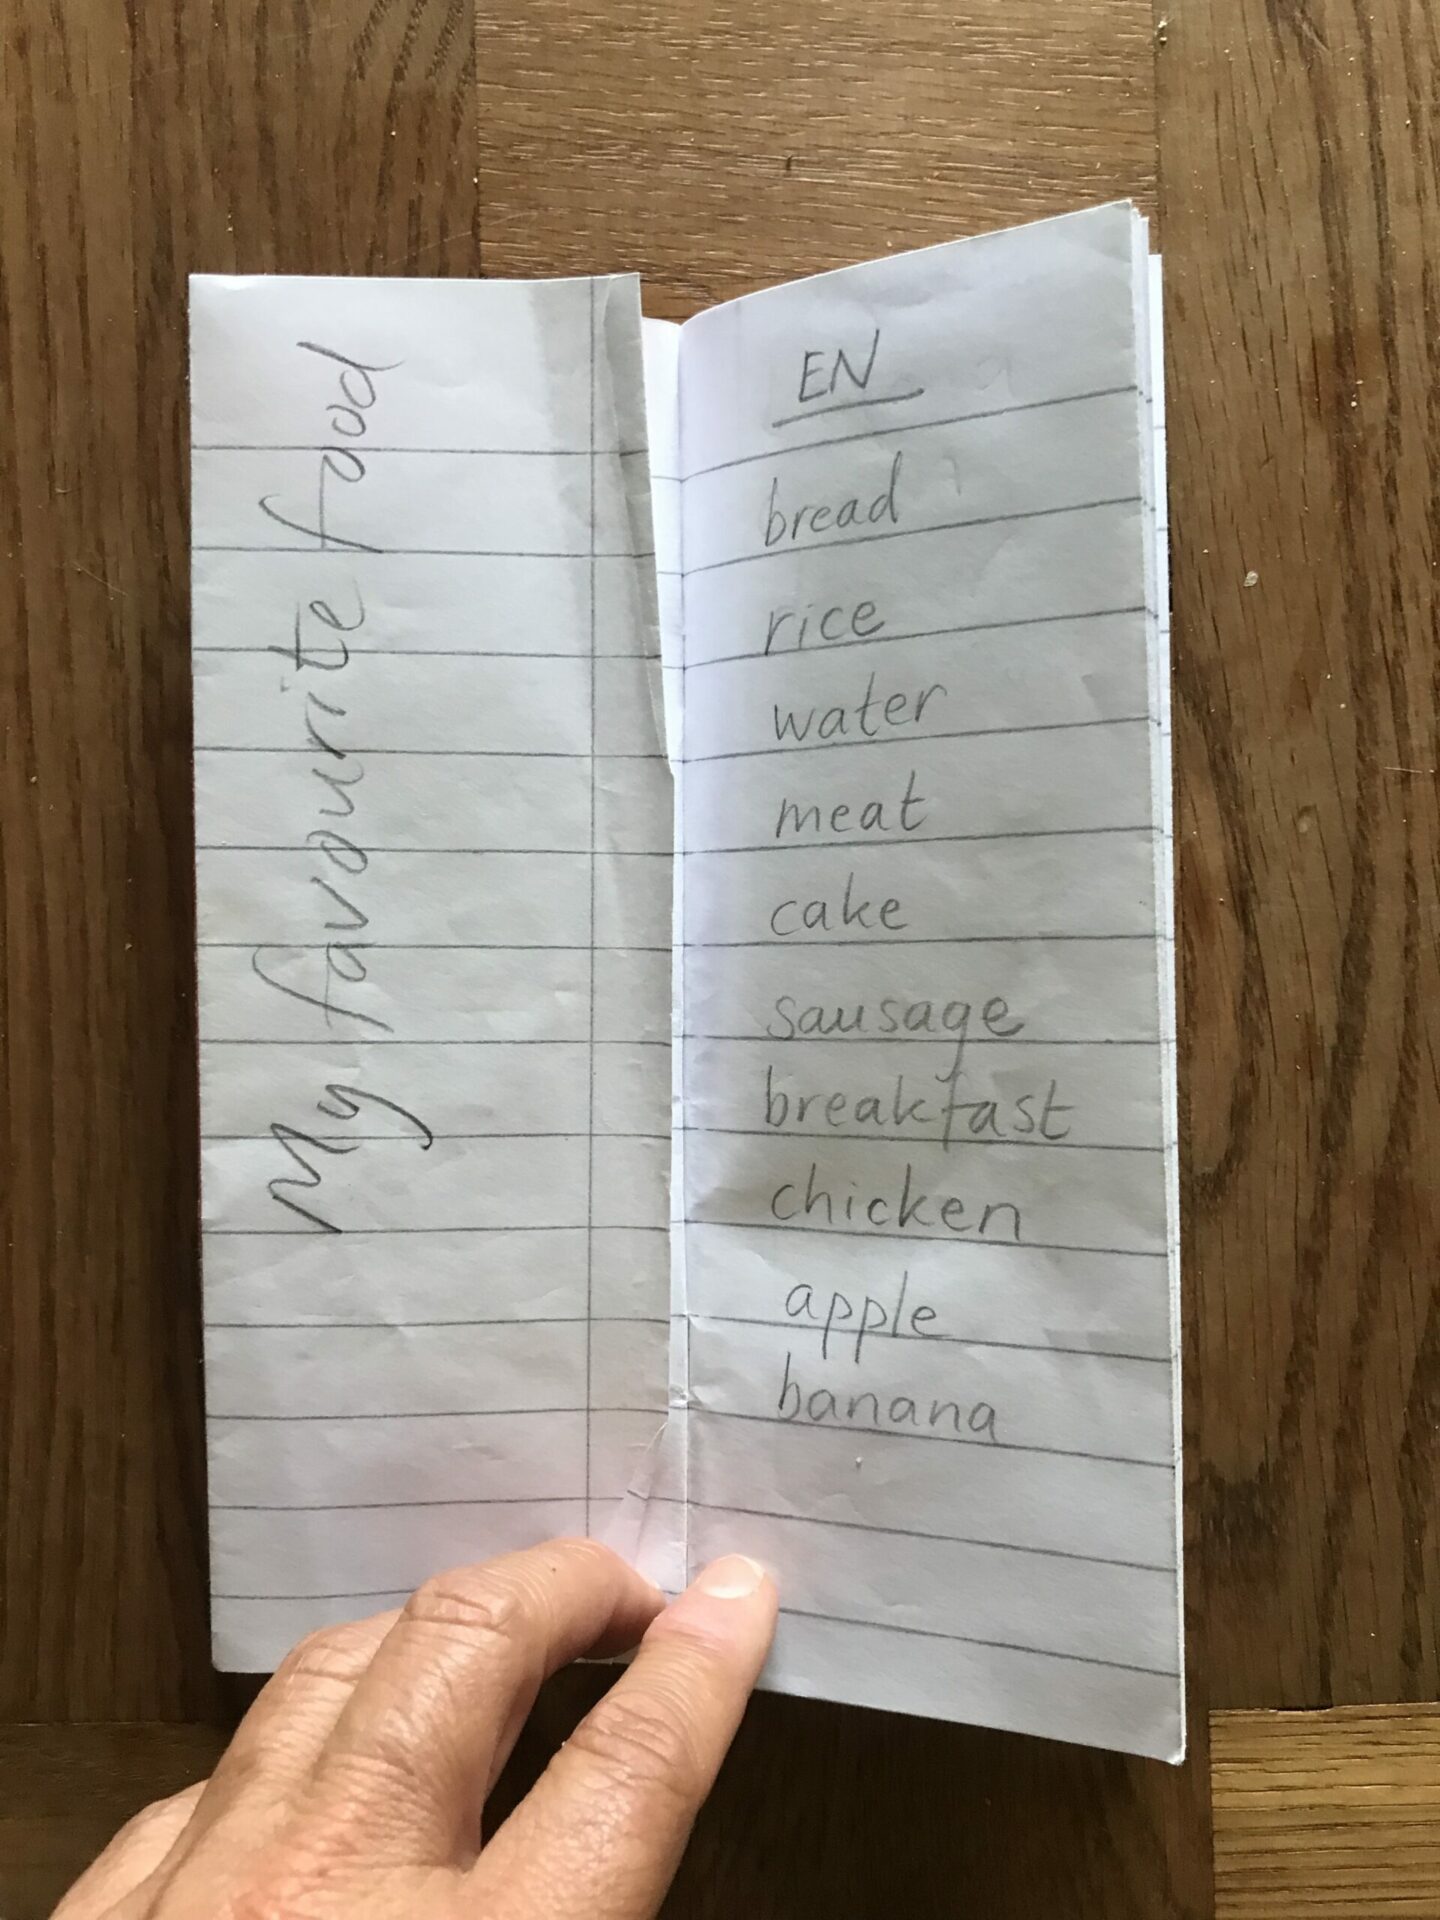 My favourite food
EN
bread
rice
water
meat
cake
sausage
breakfast
chicken
apple
banana